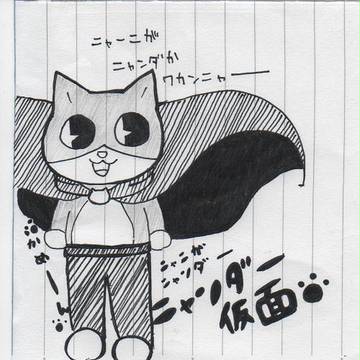 ニャーニが
ニャンダか
ワカンニャー
ニャニが
ニャンダー
ニャンダー
仮面
かめーん